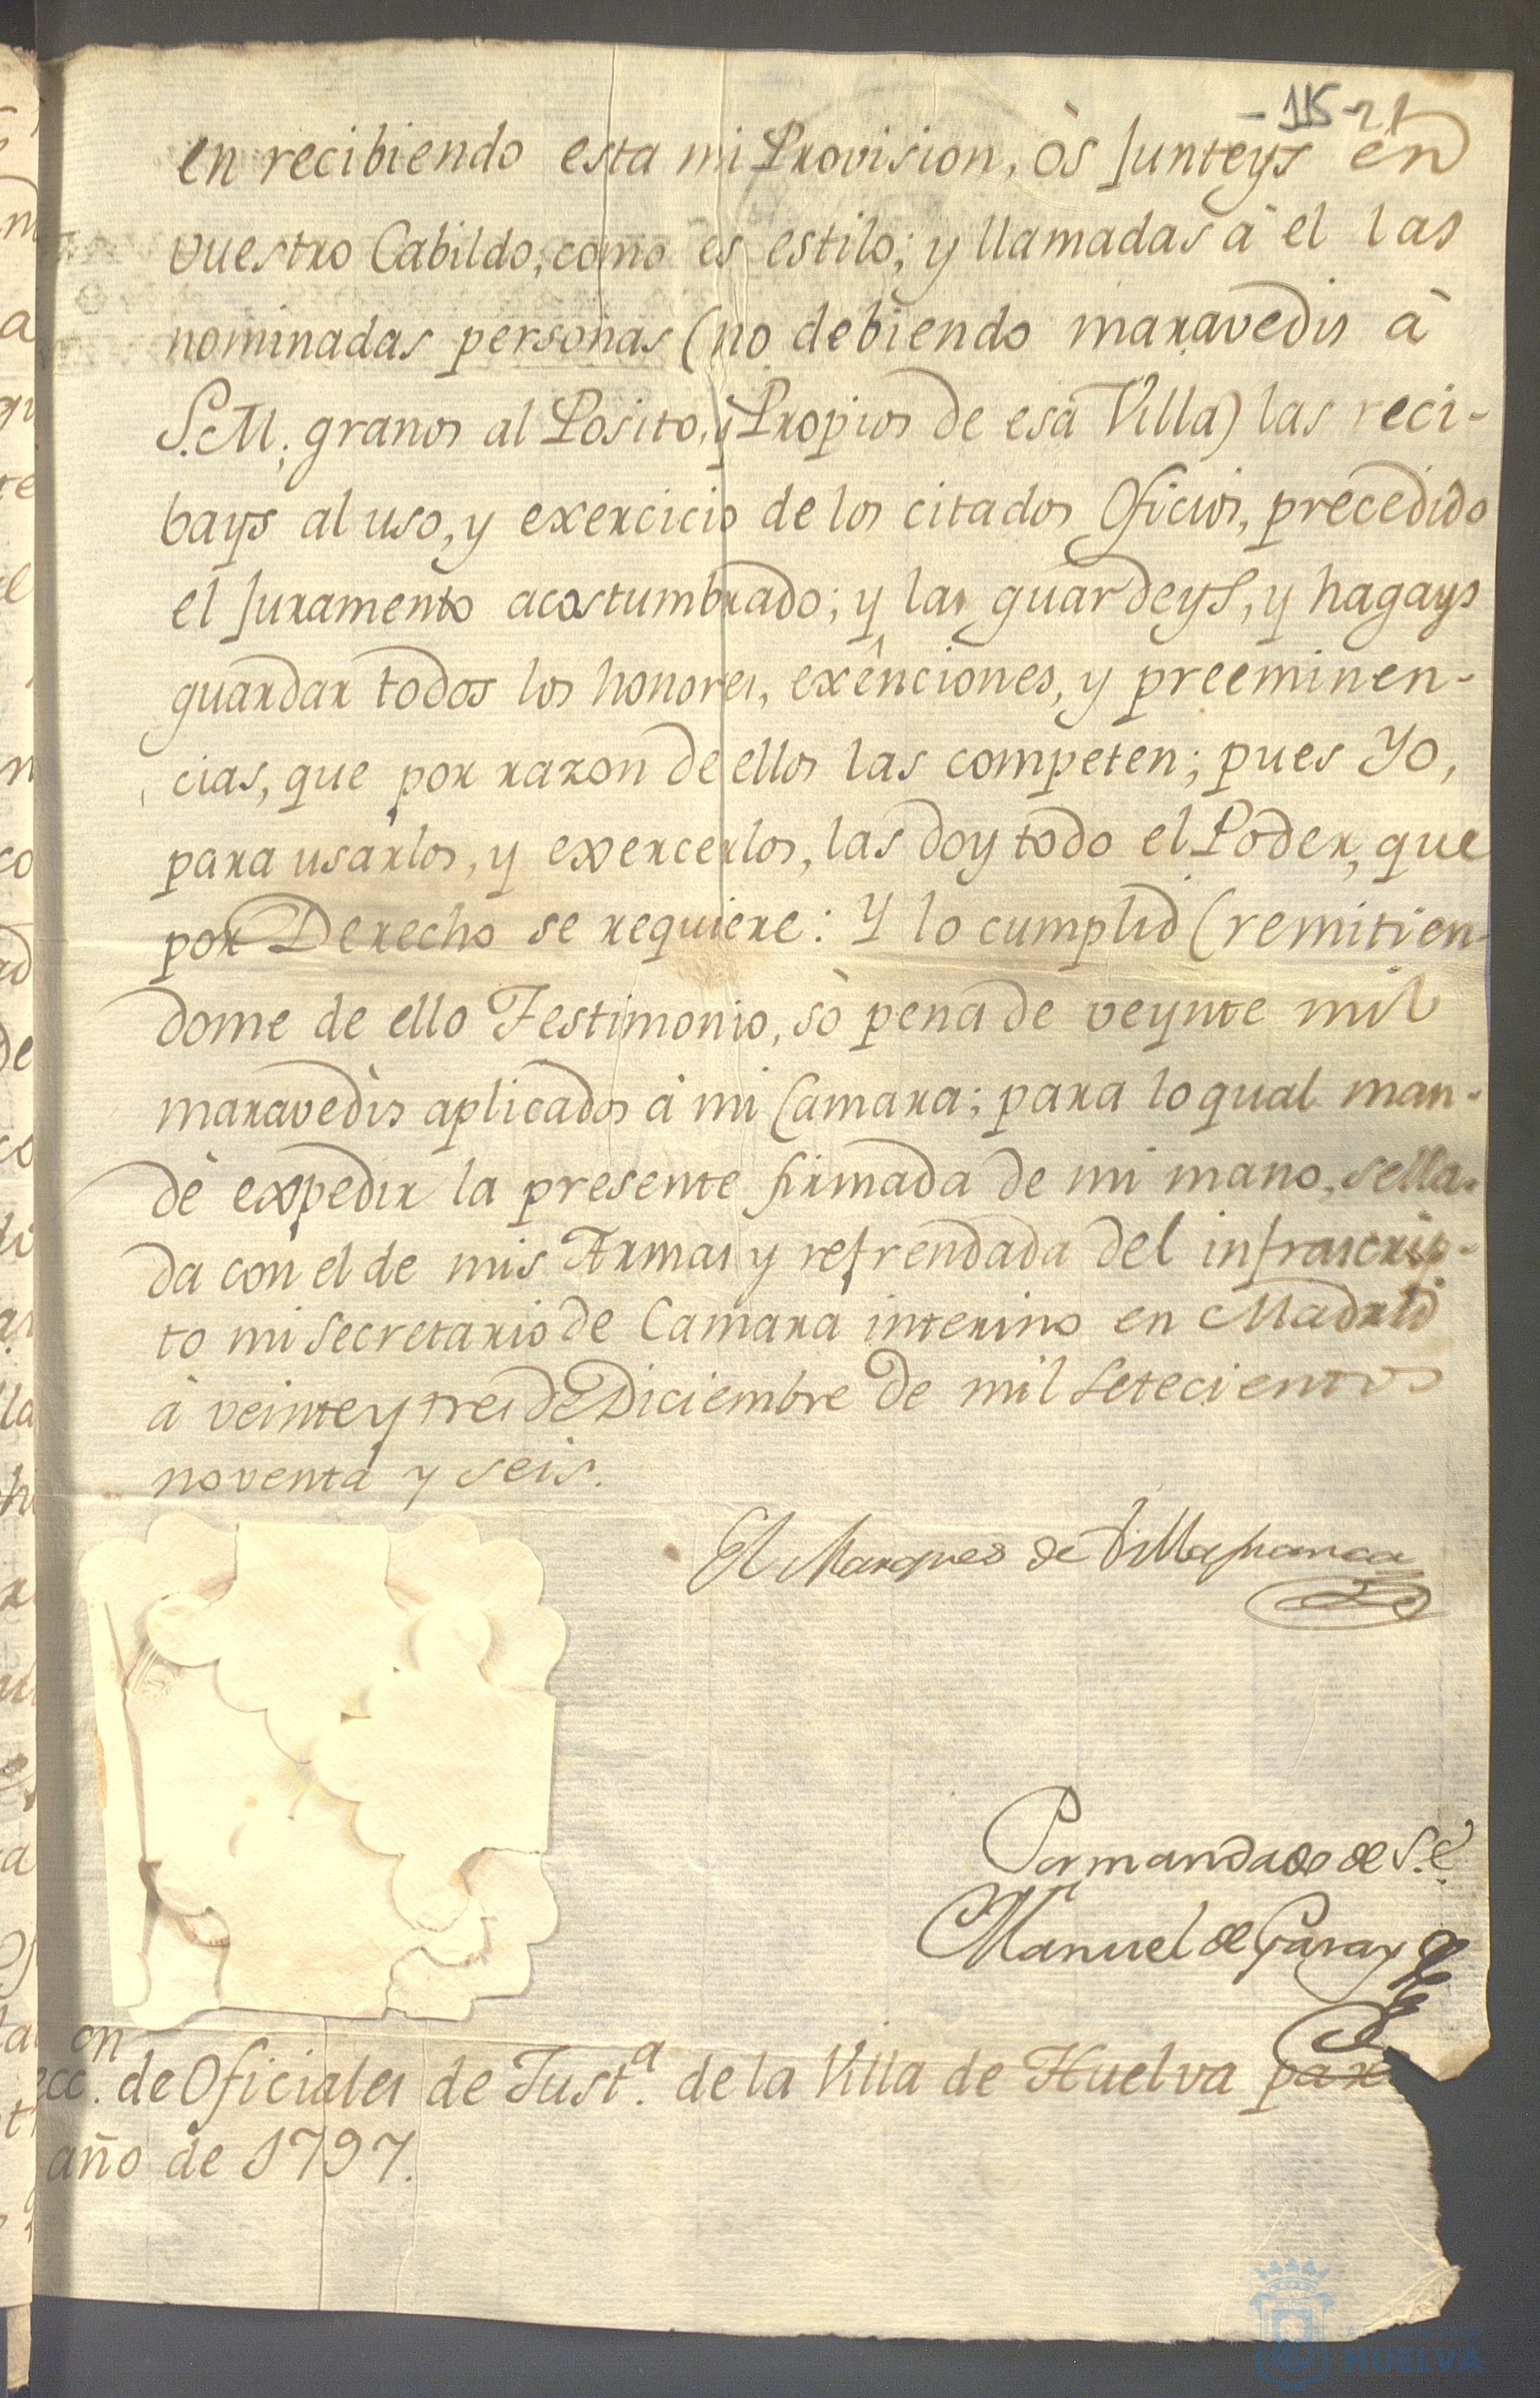 -115-21
en recibiendo esta mi Provision, ôs Junteys en
vuestro Cabildo, como es estilo; y llamadas à él las
nominadas personas (no debiendo maravedis à
S.M; granos al Posito, y Propios de esa Villa) las reci-
bays al uso, y exercicio de los citados Oficios, precedido
el Juramento acostumbrado; y las guardeys, y hagays
guardar todos los honores, exênciones, y preeminen-
cias, que por razon de ellos las competen; pues Yo,
para usarlos, y exercerlos, las doy todo el Poder, que
por Derecho se requiere: Y lo cumplid (remitien-
dome de ello Testimonio, sò pena de veynte mil
maravedìs aplicados à mi Camara; para lo qual man-
dè expedir la presente firmada de mi mano, sella-
da con el de mis Armas y refrendada del infrascrip-
to mi Secretario de Camara interino en Madrid
à veinte y tres de Diciembre de mil setecientos
noventa y seis.
El Marques de Villafranca
Por mandado de S.E.
Manuel de Garay
ecc.on de Oficiales de Just.a de la Villa de Huelva par
año de 1797.
HUELVA